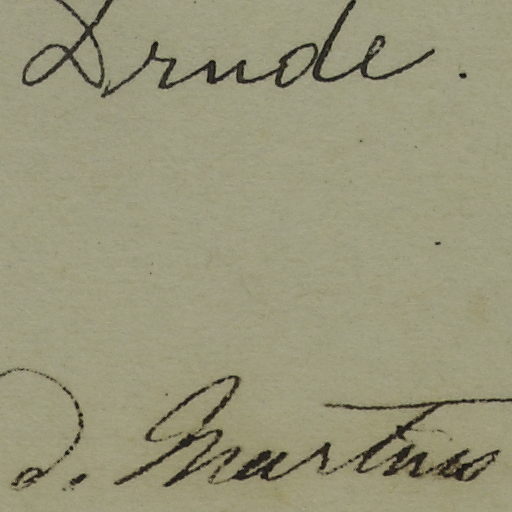 Drude.
d. Martius